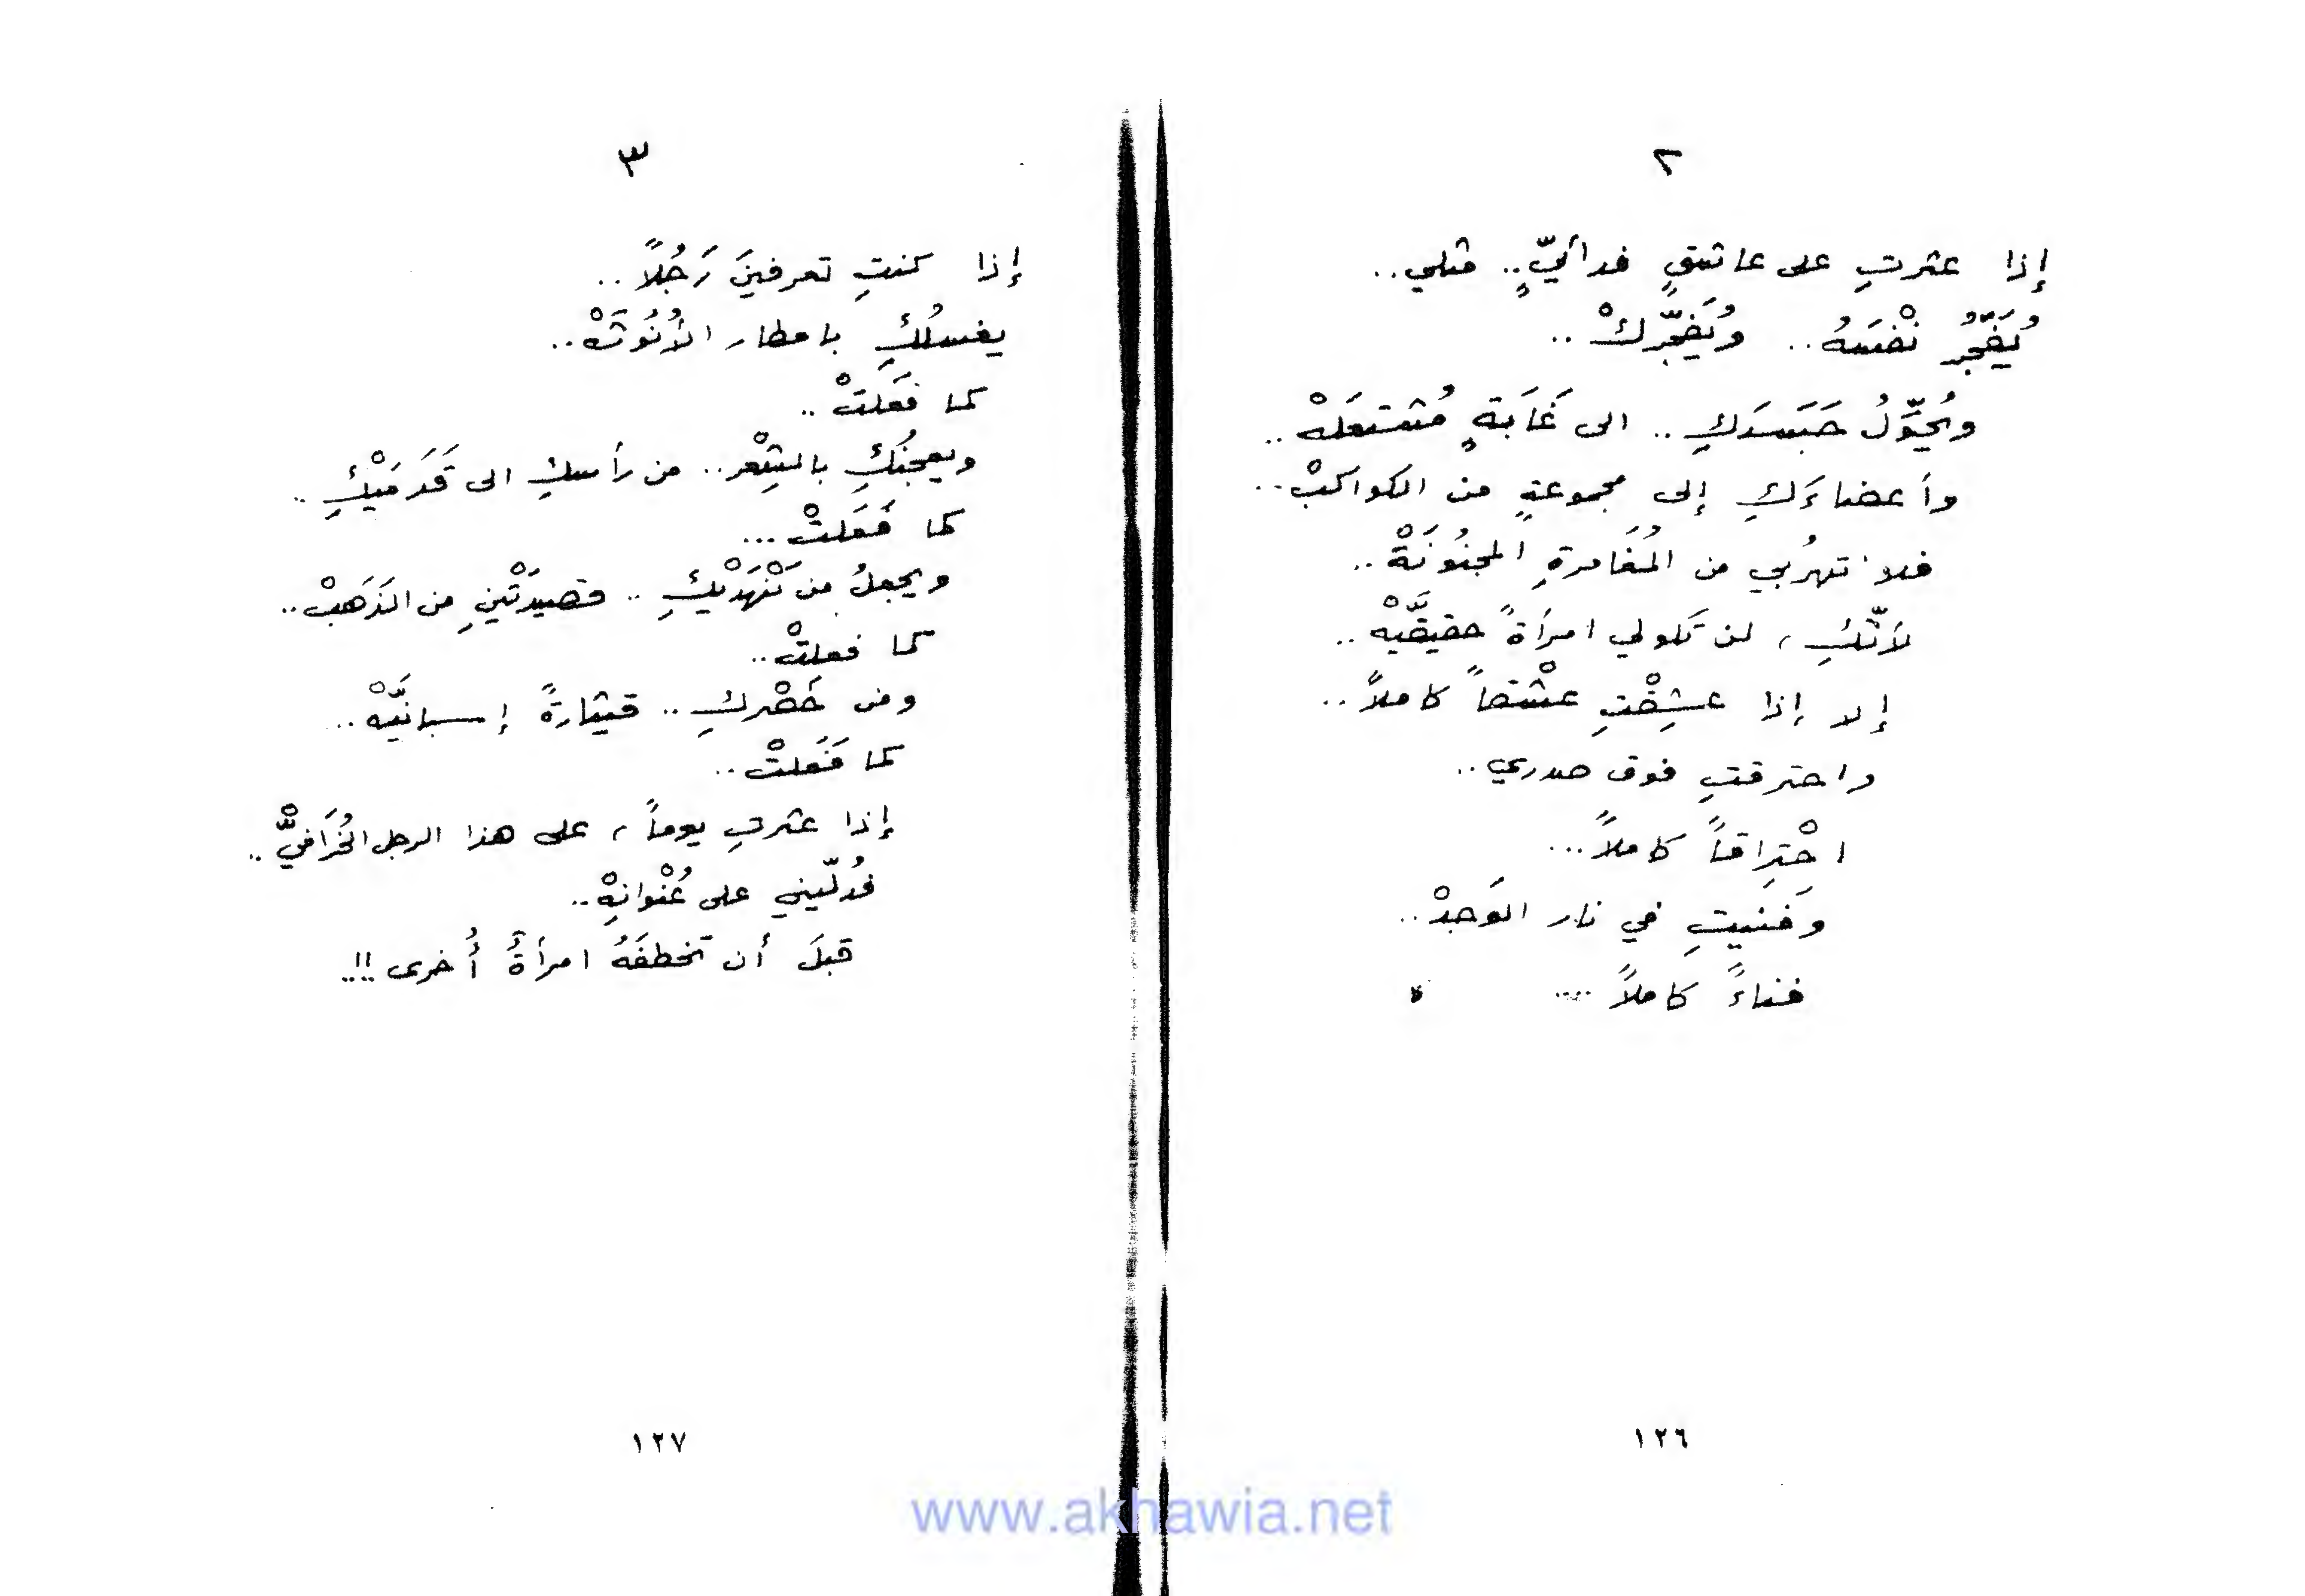 ٢
إذا عثرتِ على عاشقٍ فدائيٍّ.. مثلي..
يُفَجِّرُ نَفْسَهُ.. ويُفَجِّرُكْ..
ويُحَوِّلُ جَسَدَكِ.. الى غَابَةٍ مُشتعَلَهْ..
وأعضاءَكِ إلى مجموعةٍ من الكواكبْ..
فلا تهرُبي من المُغَامرةِ المجنُونَةْ..
لأنَّكِ، لن تكوني امرأةً حقيقيَّهْ..
إلا إذا عشِقْتِ عشْقاً كاملاً..
واحترقتِ فوق صدري..
احْتِراقاً كاملاً...
وَفنيتِ في نار الوَجدْ..
فناءً كاملاً ....
١٢٦
٣
إذا كنتِ تعرفينَ رَجُلاً..
يغسلُكِ بامطار الأُنُوثَهْ..
كما فَعَلتْ..
ويعجنُكِ بالشِعْر.. من رأسكِ الى قَدَمَيْكِ..
كما فَعَلتْ...
ويجعلُ من نَهْدَيْكِ.. قصيدَتْينِ من الذَهَبْ..
كما فعلتْ..
ومن خَصْركِ.. قيثارةً إسبانيَّهْ..
كما فَعَلتْ..
إذا عثرتِ يوماً، على هذا الرجل الخُرَافيّْ..
فدُلّيني على عُنْوانِهْ..
قبلَ أن تخطفَهُ امرأةٌ أُخرى !!..
١٢٧
www.akhawia.net